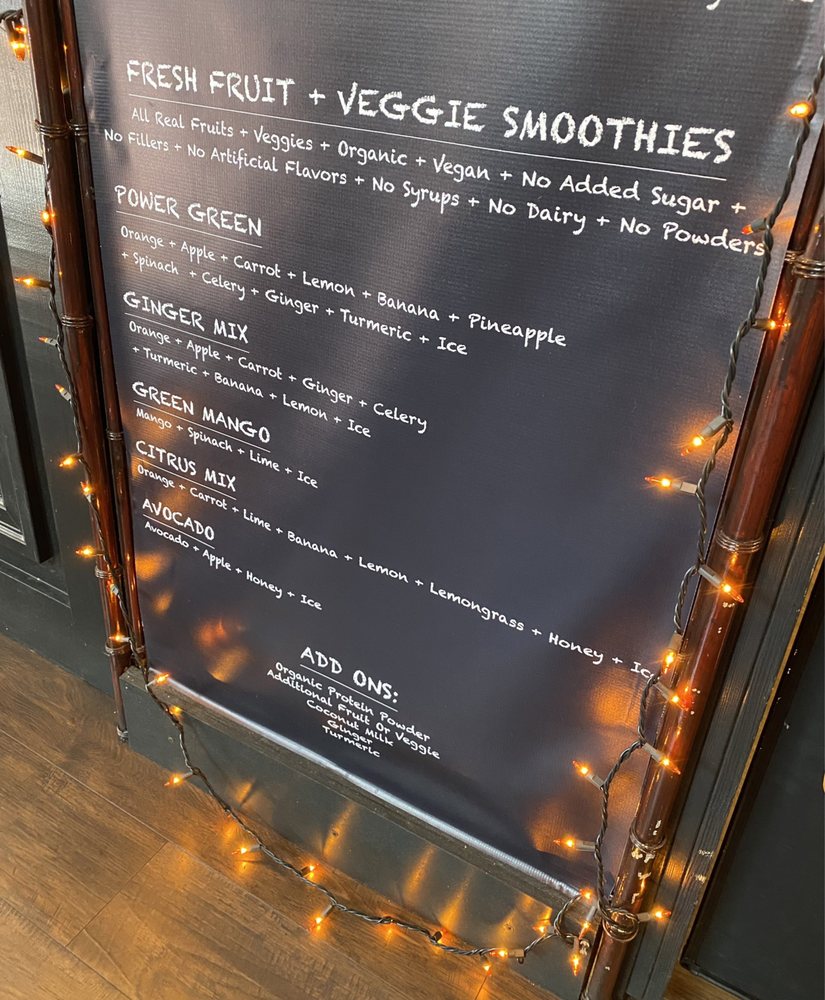 FRESH FRUIT + VEGGIE SMOOTHIES
All Real Fruits + Veggies + Organic + Vegan + No Added Sugar +
No Fillers + No Artificial Flavors + No Syrups + No Dairy + No Powders
POWER GREEN
Orange + Apple + Carrot + Lemon + Banana + Pineapple
+ Spinach + Celery + Ginger + Turmeric + Ice
GINGER MIX
Orange + Apple + Carrot + Ginger + Celery
+ Turmeric + Banana + Lemon + Ice
GREEN MANGO
Mango + Spinach + Lime + Ice
CITRUS MIX
Orange + Carrot + Lime + Banana + Lemon + Lemongrass + Honey + Ic
AVOCADO
Avocado + Apple + Honey + Ice
ADD ONS:
Organic Protein Powder
Additional Fruit Or Veggie
Coconut Milk
Ginger
Turmeric